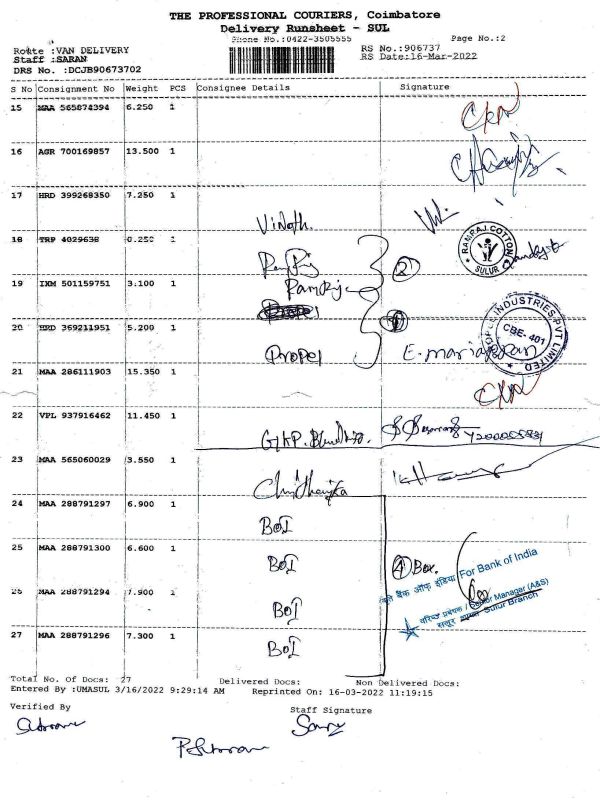 THE PROFESSIONAL COURIERS, Coimbatore
Delivery Runsheet - SUL
Phone No.:0422-3505555
Page No.:2
Route :VAN DELIVERY
RS No.:906737
Staff :SARAN
RS Date:16-Mar-2022
DRS No. :DCJB90673702
S No Consignment No Weight PCS Consignee Details Signature
15 MAA 565874394 6.250 1
16 AGR 700169857 13.500 1
17 HRD 399268350 7.250 1
Vinoth.
18 TRP 4029638 0.250 1
RAMRAJ COTTON
SULUR
2
19 IXM 501159751 3.100 1
RamRaj
20 HRD 369211951 5.200 1
INDUSTRIES PVT LIMITED
CBE- 401
Propel
E. mariappan
21 MAA 286111903 15.350 1
22 VPL 937916462 11.450 1
23 MAA 565060029 3.550 1
24 MAA 288791297 6.900 1
BOI
25 MAA 288791300 6.600 1
BOI
4 Box.
बैंक ऑफ इंडिया For Bank of India
26 MAA 288791294 7.900 1
BOI
वरिष्ठ प्रबंधक / Senior Manager (A&S)
Sulur Branch
27 MAA 288791296 7.300 1
BOI
Total No. of Docs: 27 Delivered Docs: Non Delivered Docs:
Entered By :UMASUL 3/16/2022 9:29:14 AM Reprinted On: 16-03-2022 11:19:15
Verified By
Staff Signature